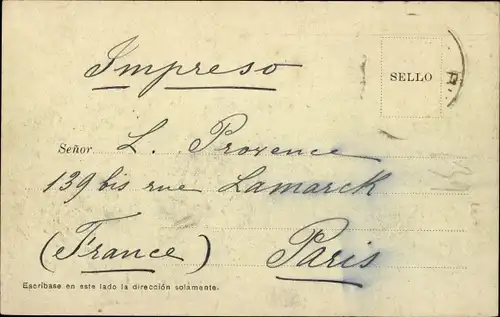 Impreso
SELLO
Señor L. Provence
139 bis rue Lamarck
(France) Paris
Escríbase en este lado la dirección solamente.